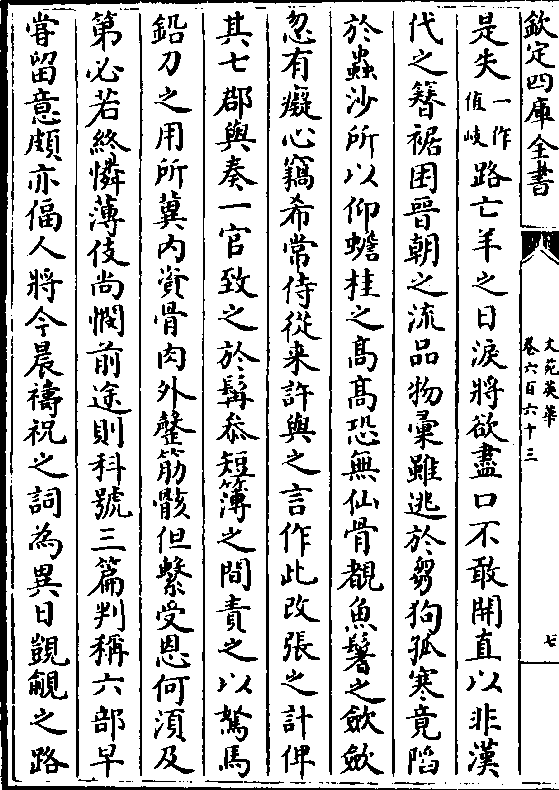 欽定四庫全書
文苑英華
卷六百六十三
七
是失一作值岐路亡羊之日淚將欲盡口不敢開直以非漢
代之簪裾困晉朝之流品物彚雖逃於芻狗孤寒竟陷
於蟲沙所以仰蟾桂之髙髙恐無仙骨覩魚鬐之歘歘
忽有癡心竊希常侍從来許與之言作此改張之計俾
其七郡與奏一官致之於髯叅短簿之間責之以駑馬
鉛刀之用所冀内資骨肉外罄筋骸但繫受恩何須及
第必若終憐薄伎尚憫前途則科號三篇判稱六部早
甞留意頗亦偪人將今晨禱祝之詞為異日覬覦之路